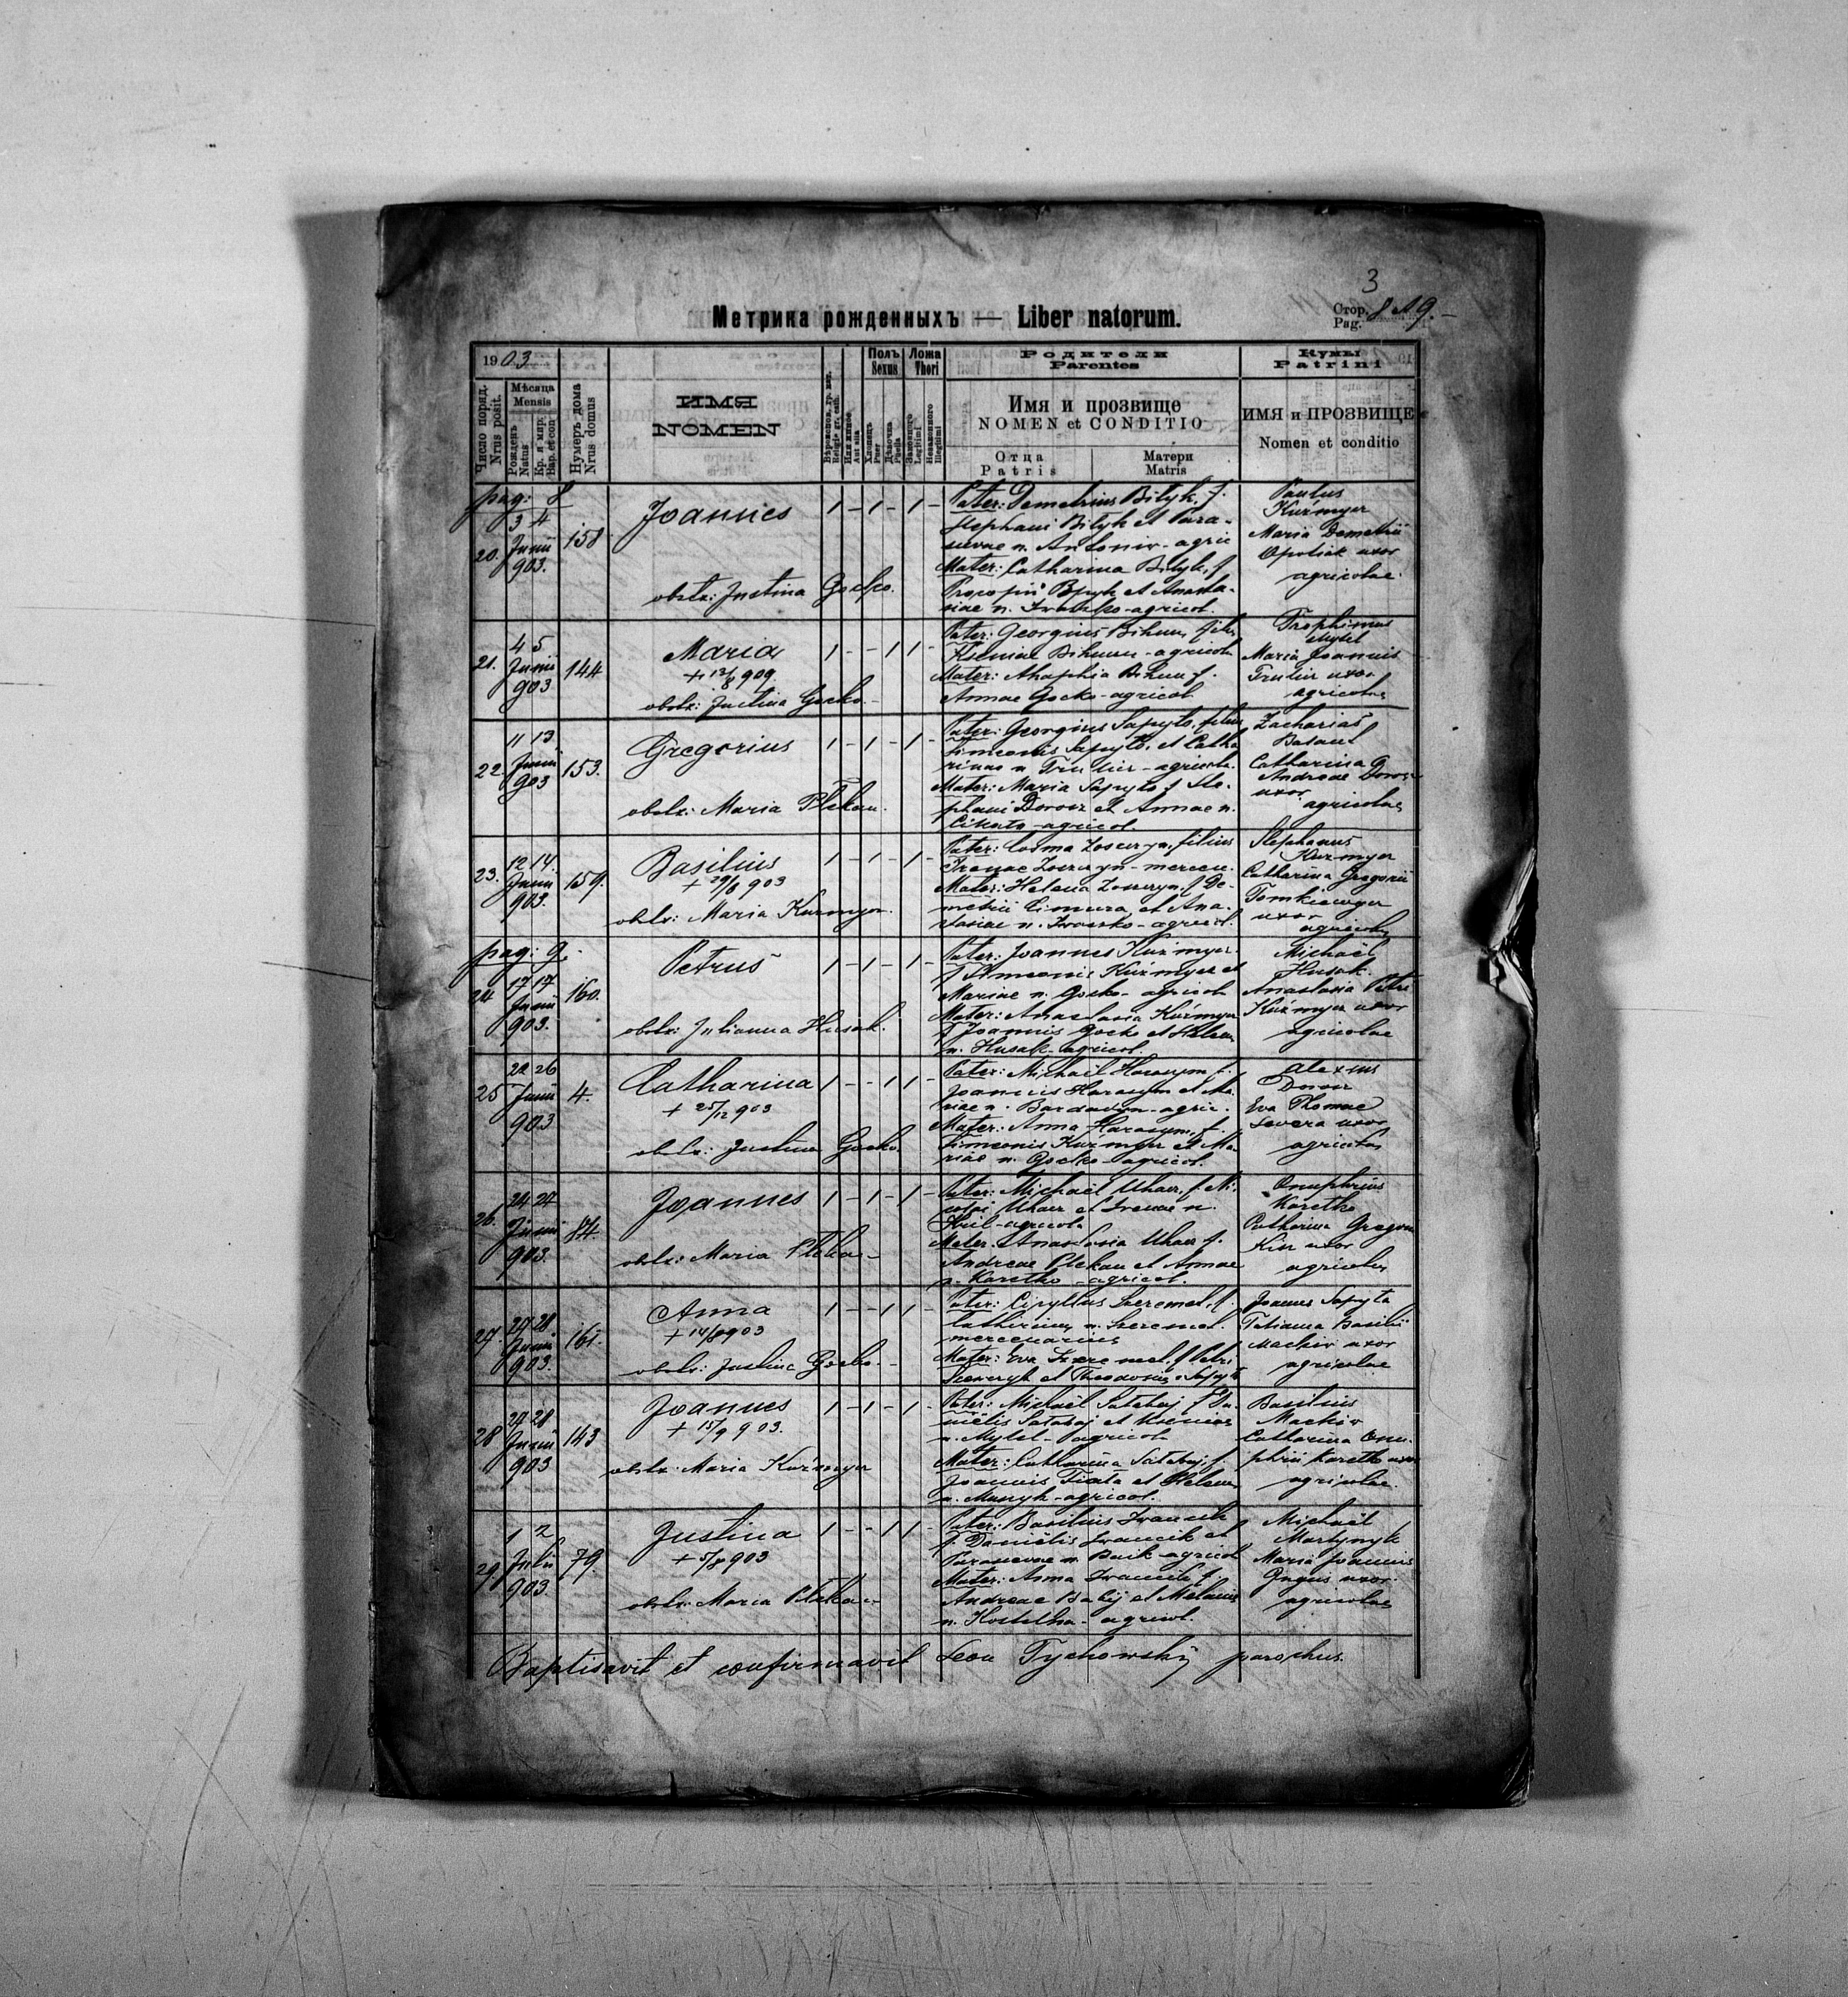 3
Метрика рожденныхъ — Liber natorum.
Стор. 8 et 9.-
Pag.
1903
Число поряд.
Nrus posit.
Мѣсяца
Mensis
Рожденъ
Natus
Кр. и мир.
Bap. et con.
Нумеръ дома
Nrus domus
ИМЯ
NOMEN
Полъ
Sexus
Ложа
Thori
Хлопецъ
Puer
Дѣвочка
Puella
Законного
Legitimi
Незаконного
Illegitimi
Родители
Parentes
Имя и прозвище
NOMEN et CONDITIO
Отца
Patris
Матери
Matris
Кумы
Patrini
ИМЯ и ПРОЗВИЩЕ
Nomen et conditio
pag: 8
20. 3 4 Junii 903. 158
Joannes
obstx: Justina Gocko.
1 - 1 - 1 -
Pater: Demetrius Bilyk, f.
Stephani Bilyk et Para-
scevae n. Antoniw - agric
Mater: Catharina Bilyk, f.
Procopii Bzyk et Anasta-
siae n. Iwaszko - agricol.
Paulus
Kuźmycz
Maria Demetrii
Opotiak uxor
agricolae.
21. 4 5 Junii 903 144
Maria
+ 12/8 909.
obstx: Justina Gocko.-
1 - - 1 1 -
Pater: Georgius Bihun, filius
Kseniae Bihun - agricola
Mater: Ahaphia Bihun f.
Annae Gocko - agricol.
Trophimus
Mytel
Maria Joannis
Trulin uxor
agricolae
22. 11 13 Junii 903 153.
Gregorius
obstx: Maria Plekan.
1 - 1 - 1 -
Pater: Georgius Sapyto, filius
Simeonis Sapyto, et Catha
rinae n. Trulin - agricola.
Mater: Maria Sapyto f. Ste-
phani Dorosz et Annae n.
agricol.
Zacharias
Catharina
Andreae Dorosz
uxor
agricolae
23. 12 14 Junii 903. 159.
Basilius
+ 29/6 903
obstx: Maria Kuzmycz.
1 - 1 - 1 -
Pater: Cosma filius
Irenae - mercen.
Mater: Helena f. De-
metrii et Ana-
stasiae n. Iwaszko - agricol.
Stephanus
Kuzmycz
Catharina Gregorii
Tomkiewycz
uxor
agricolae
pag: 9.
24 17 17 Junii 903. 160.
Petrus
obstx: Julianna Husak.
1 - 1 - 1 -
Pater: Joannes Kuźmycz.
f. Simeonis Kuźmycz et
Mariae n. Gocko - agricola
Mater: Anastasia Kuźmycz
f. Joannis Gocko et Helenae
n. Husak - agricol.
Michaël
Husak.
Anastasia Petri
Kuźmycz uxor
agricolae
25 22 26 Junii 903 4.
Catharina
+ 25/12 903
obstx: Justina Gocko.
1 - - 1 1 -
Pater: Michaël Harasym f.
Joannis Harasym et Ma-
riae n. - agric.
Mater: Anna Harasym, f.
Simeonis Kuźmycz et Ma-
riae n. Gocko - agricol.
Alexius
Dorosz
Eva Thomae
Severa uxor
agricolae
26. 24 27 Junii 903. 84.
Joannes
obstx: Maria Plekan-
1 - 1 - 1 -
Pater: Michaël Uhacz, f. Ni-
colai Uhacz et Irenae n.
Kril - agricola
Mater: Anastasia Uhacz f.
Andreae Plekan et Annae
n. Karetko - agricol.
Onuphrius
Karetko
Catharina Gregorii
uxor
agricolae
27. 27 28 Junii 903. 161.
Anna
obstx: Justina Gocko -
1 - - 1 1 -
Pater: Cyryllus Szeremet, f.
Catharinae n. Szeremet.
mercenarius
Mater: Eva Szeremet, f. Petri
et Theodosiae n. Sapyto
Joannes Sapyto
Tatianna Basilii
Mackiw uxor
agricolae
28 27 28 Junii 903 143
Joannes
+ 15/9 903.
obstx: Maria Kuźmycz
1 - 1 - 1 -
Pater: Michaël Satabaj f. Da-
niëlis Satabaj et Kseniae
n. Mytel - agricola
Mater: Catharina Satabaj, f.
Joannis et Helenae
n. - agricol.
Basilius
Mackiw
Catharina Onu-
phrii Karetko uxor
agricolae.
29. 1 2 Julii 903 79.
Justina
+ 5/8 903
obstx: Maria Plekan-
1 - - 1 1 -
Pater: Basilius Iwancik
f. Daniëlis Iwancik et
Parascevae n. - agricol
Mater: Anna Iwancik f.
Andreae Babij et Melaniae
n. - agricol.
Michaël
Martynyk
Maria Joannis
uxor.
agricolae
Baptisavit et confirmavit Leon Tychowskij parochus.